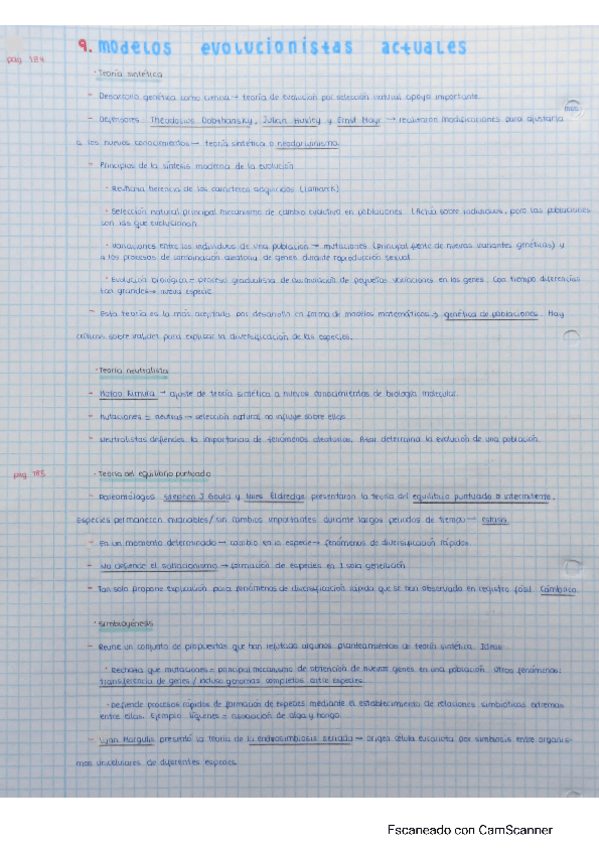 9. modelos evolucionistas actuales
pag 184
· Teoría sintética
- Desarrollo genética como ciencia → teoría de evolución por selección natural apoyo importante.
- Defensores: Theodosius Dobzhansky, Julian Huxley y Ernst Mayr → realizaron modificaciones para ajustarla
a los nuevos conocimientos → teoría sintética o neodarwinismo.
- Principios de la síntesis moderna de la evolución
· Rechaza herencia de los caracteres adquiridos (Lamarck)
· Selección natural principal mecanismo de cambio evolutivo en poblaciones. (Actúa sobre individuos, pero las poblaciones
son las que evolucionan.
· Variaciones entre los individuos de una población → mutaciones (principal fuente de nuevas variantes genéticas) y
a los procesos de combinación aleatoria de genes durante reproducción sexual.
· Evolución biológica = proceso gradualista de acumulación de pequeñas variaciones en los genes. Con tiempo diferencias
tan grandes → nueva especie.
- Esta teoría es la más aceptada por desarrollo en forma de modelos matemáticos → genética de poblaciones. Hay
críticas sobre validez para explicar la diversificación de las especies.
· Teoría neutralista
- Motoo Kimura → ajuste de teoría sintética a nuevos conocimientos de biología molecular.
- Mutaciones = neutras → selección natural no influye sobre ellas.
- Neutralistas defienden la importancia de fenómenos aleatorios. Azar determina la evolución de una población.
pag 185
· Teoría del equilibrio puntuado
- Paleontólogos Stephen J Gould y Niles Eldredge presentaron la teoría del equilibrio puntuado o intermitente.
Especies permanecen invariables / sin cambios importantes durante largos periodos de tiempo → estasis.
- En un momento determinado → cambio en la especie → fenómenos de diversificación rápidos.
- No defiende el saltacionismo → formación de especies en 1 sola generación
- Tan solo propone explicación para fenómenos de diversificación rápida que se han observado en registro fósil. Cámbrico.
· Simbiogénesis
- Reúne un conjunto de propuestas que han refutado algunos planteamientos de teoría sintética. Ideas:
· Rechaza que mutaciones = principal mecanismo de obtención de nuevos genes en una población. Otros fenómenos:
transferencia de genes / incluso genomas completos entre especies.
· Defiende procesos rápidos de formación de especies mediante el establecimiento de relaciones simbióticas extremas
entre ellas. Ejemplo: líquenes = asociación de alga y hongo.
- Lynn Margulis presentó la teoría de la endosimbiosis seriada → origen célula eucariota por simbiosis entre organis-
mos unicelulares de diferentes especies
Escaneado con CamScanner